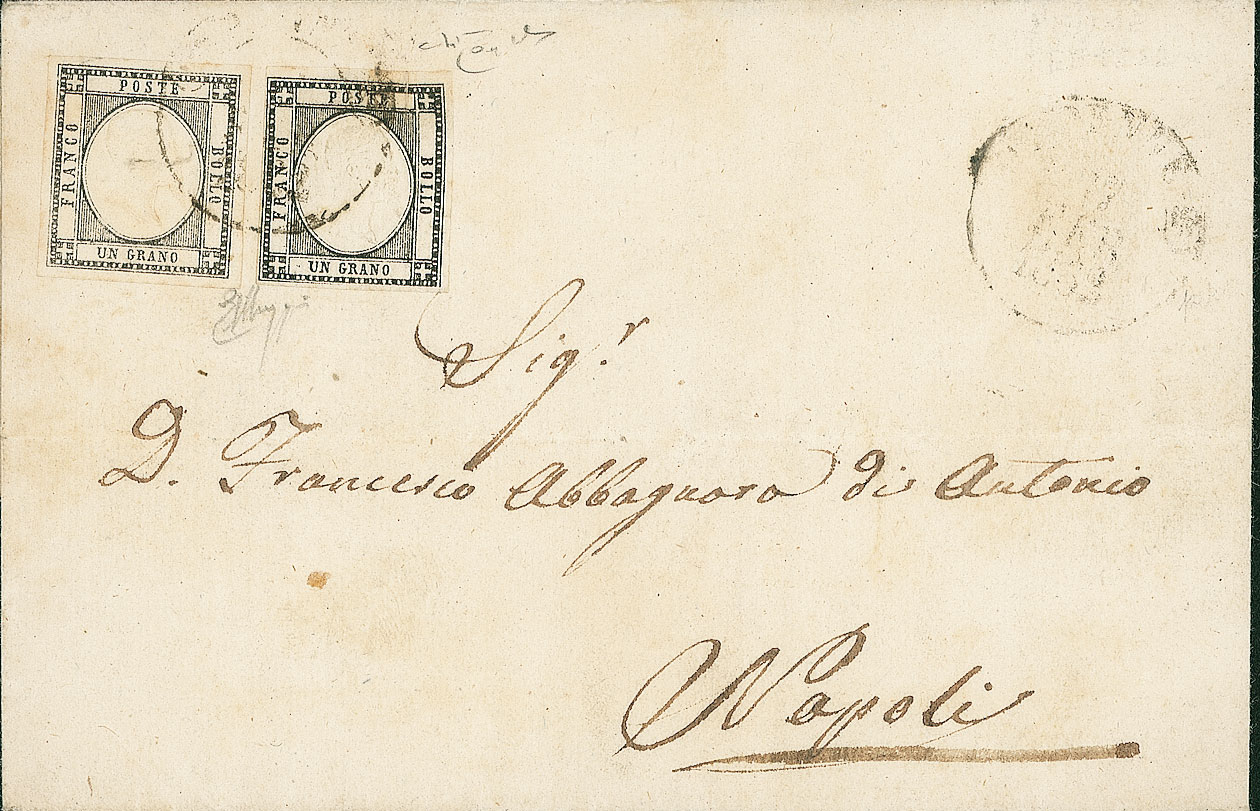 POSTE
FRANCO
BOLLO
UN GRANO
POSTE
FRANCO
BOLLO
UN GRANO
Sig.r
D. Francesco Abbagnara di Antonio
Napoli